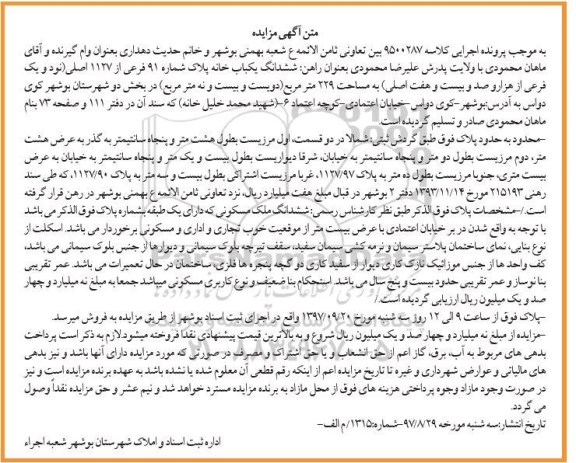 متن آگهی مزایده
به موجب پرونده اجرایی کلاسه ۹۵۰۰۲۸۷ بین تعاونی ثامن الائمه ع شعبه بهمنی بوشهر و خانم حدیث دهداری بعنوان وام گیرنده و آقای
ماهان محمودی با ولایت پدرش علیرضا محمودی بعنوان راهن: ششدانگ یکباب خانه پلاک شماره ۹۱ فرعی از ۱۱۲۷ اصلی(نود و یک
فرعی از هزارو صد و بیست و هفت اصلی) به مساحت ۲۲۹ متر مربع(دویست و بیست و نه متر مربع) در بخش دو شهرستان بوشهر کوی
دواس به آدرس:بوشهر-کوی دواس-خیابان اعتمادی-کوچه اعتماد ۶-(شهید محمد خلیل خانه) که سند آن در دفتر ۱۱۱ و صفحه ۷۳ بنام
ماهان محمودی صادر و تسلیم گردیده است.
-محدود به حدود پلاک فوق طبق گردش ثبتی: شمالا در دو قسمت، اول مرزیست بطول هشت متر و پنجاه سانتیمتر به گذر به عرض هشت
متر، دوم مرزیست بطول دو متر و پنجاه سانتیمتر به خیابان، شرقا دیواریست بطول بیست و یک متر و پنجاه سانتیمتر به خیابان به عرض
بیست متری، جنوبا مرزیست بطول ده متر به پلاک ۱۱۲۷/۹۷، غربا مرزیست اشتراکی بطول بیست و سه متر به پلاک ۱۱۲۷/۹۰، که طی سند
رهنی ۲۱۵۱۹۳ مورخ ۱۳۹۳/۱۱/۱۴ دفتر ۲ بوشهر در قبال مبلغ هفت میلیارد ریال، نزد تعاونی ثامن الائمه ع بهمنی بوشهر در رهن قرار گرفته
است./-مشخصات پلاک فوق الذکر طبق نظر کارشناس رسمی: ششدانگ ملک مسکونی که دارای یک طبقه بشماره پلاک فوق الذکر می باشد
با توجه به واقع شدن در بر خیابان اعتمادی با عرض بیست متر از موقعیت خوب تجاری و اداری و مسکونی برخوردار می باشد. اسکلت از
نوع بنایی، نمای ساختمان پلاستر سیمان و نرمه کشی سیمان سفید، سقف تیرچه بلوک سیمانی و دیوارها از جنس بلوک سیمانی می باشد،
کف واحد ها از جنس موزائیک نازک کاری دیوار از سفید کاری دو گچه پنجره ها فلزی، ساختمان در حال تعمیرات می باشد. عمر تقریبی
بنا نوساز و عمر تقریبی حدود بیست و پنج سال می باشد. استحکام بنا ضعیف و نوع کاربری مسکونی میباشد جمعا به مبلغ نه میلیارد و چهار
صد و یک میلیون ریال ارزیابی گردیده است./
-پلاک فوق از ساعت ۹ الی ۱۲ روز سه شنبه مورخ ۱۳۹۷/۰۹/۲۰ واقع در اجرای ثبت اسناد بوشهر از طریق مزایده به فروش میرسد.
-مزایده از مبلغ نه میلیارد و چهار صد و یک میلیون ریال شروع و به بالاترین قیمت پیشنهادی نقدا فروخته میشود.لازم به ذکر است پرداخت
بدهی های مربوط به آب، برق، گاز اعم از حق انشعاب و یا حق اشتراک و مصرف در صورتی که مورد مزایده دارای آنها باشد و نیز بدهی
های مالیاتی و عوارض شهرداری و غیره تا تاریخ مزایده اعم از اینکه رقم قطعی آن معلوم شده یا نشده باشد به عهده برنده مزایده است و نیز
در صورت وجود مازاد وجوه پرداختی هزینه های فوق از محل مازاد به برنده مزایده مسترد خواهد شد و نیم عشر و حق مزایده نقداً وصول
می گردد.
تاریخ انتشار:سه شنبه مورخه ۹۷/۸/۲۹-شماره:۱۳۱۵/م الف-
اداره ثبت اسناد و املاک شهرستان بوشهر شعبه اجراء